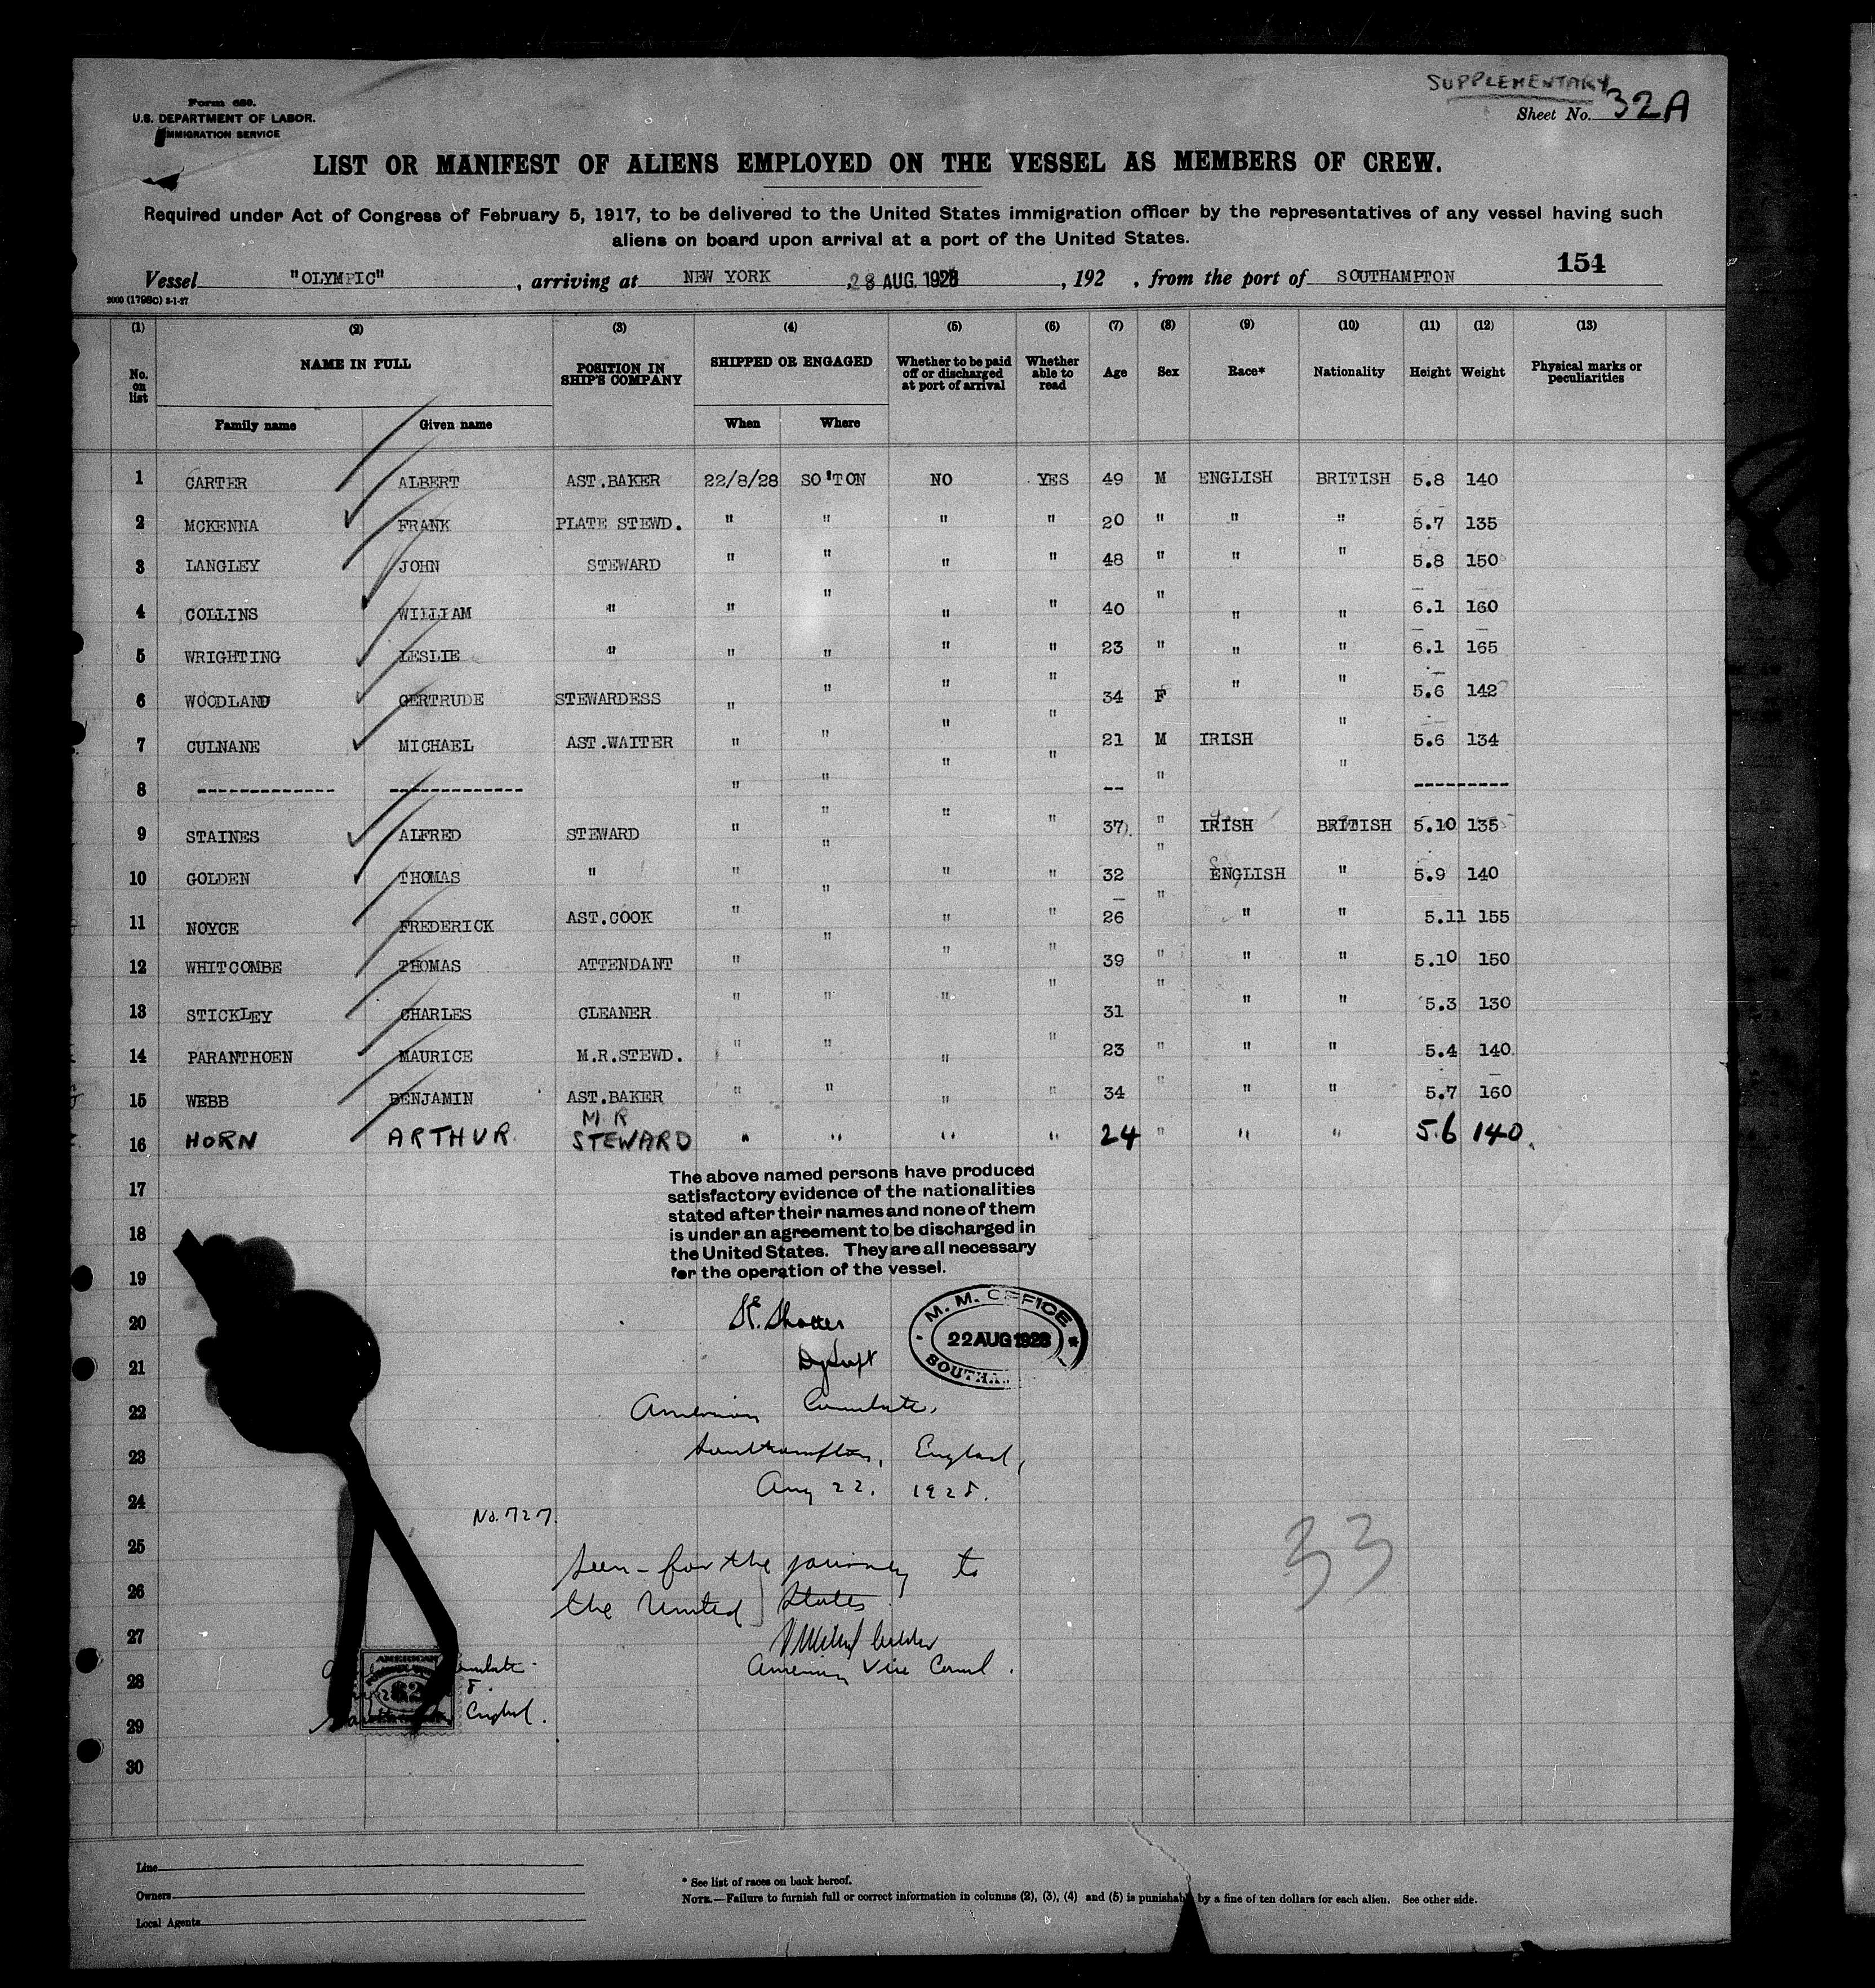 SUPPLEMENTARY
Form 680.
U.S. DEPARTMENT OF LABOR.
IMMIGRATION SERVICE
Sheet No. 32A
LIST OR MANIFEST OF ALIENS EMPLOYED ON THE VESSEL AS MEMBERS OF CREW.
Required under Act of Congress of February 5, 1917, to be delivered to the United States immigration officer by the representatives of any vessel having such
aliens on board upon arrival at a port of the United States.
151
Vessel "OLYMPIC", arriving at NEW YORK, 28 AUG. 1928, 192 , from the port of SOUTHAMPTON
2000 (1798c) 2-1-27
(1) (2) (3) (4) (5) (6) (7) (8) (9) (10) (11) (12) (13)
No. on list NAME IN FULL POSITION IN SHIP'S COMPANY SHIPPED OR ENGAGED Whether to be paid off or discharged at port of arrival Whether able to read Age Sex Race* Nationality Height Weight Physical marks or peculiarities
Family name Given name When Where
1 CARTER ALBERT AST.BAKER 22/8/28 SO'TON NO YES 49 M ENGLISH BRITISH 5.8 140
2 MCKENNA FRANK PLATE STEWD. " " " " 20 " " " 5.7 135
3 LANGLEY JOHN STEWARD " " " " 48 " " " 5.8 150
4 COLLINS WILLIAM " " " " " 40 " " " 6.1 160
5 WRIGHTING LESLIE " " " " " 23 " " " 6.1 165
6 WOODLAND GERTRUDE STEWARDESS " " " " 34 F " " 5.6 142
7 CULNANE MICHAEL AST.WAITER " " " " 21 M IRISH " 5.6 134
8 ------------- ------------- " " " " -- " " ---------
9 STAINES ALFRED STEWARD " " " " 37 " IRISH BRITISH 5.10 135
10 GOLDEN THOMAS " " " " " 32 " ENGLISH " 5.9 140
11 NOYCE FREDERICK AST.COOK " " " " 26 " " " 5.11 155
12 WHITCOMBE THOMAS ATTENDANT " " " " 39 " " " 5.10 150
13 STICKLEY CHARLES CLEANER " " " " 31 " " " 5.3 130
14 PARANTHOEN MAURICE M.R.STEWD. " " " " 23 " " " 5.4 140.
15 WEBB BENJAMIN AST.BAKER " " " " 34 " " " 5.7 160
16 HORN ARTHUR. M R STEWARD " " " " 24 " " " 5.6 140.
17
The above named persons have produced
satisfactory evidence of the nationalities
stated after their names and none of them
is under an agreement to be discharged in
the United States. They are all necessary
for the operation of the vessel.
18
19
20
M. M. OFFICE
22 AUG 1928
SOUTHA
21
22 American Consulate,
23 Southampton, England,
24 Aug 22. 1928.
No. 727.
25 Seen - for the journey to
26 the United States
33
27
28 American Vice Consul.
AMERICAN
$2
England.
29
30
Line
Owners
Local Agents
* See list of races on back hereof.
NOTE.—Failure to furnish full or correct information in columns (2), (3), (4) and (5) is punishable by a fine of ten dollars for each alien. See other side.